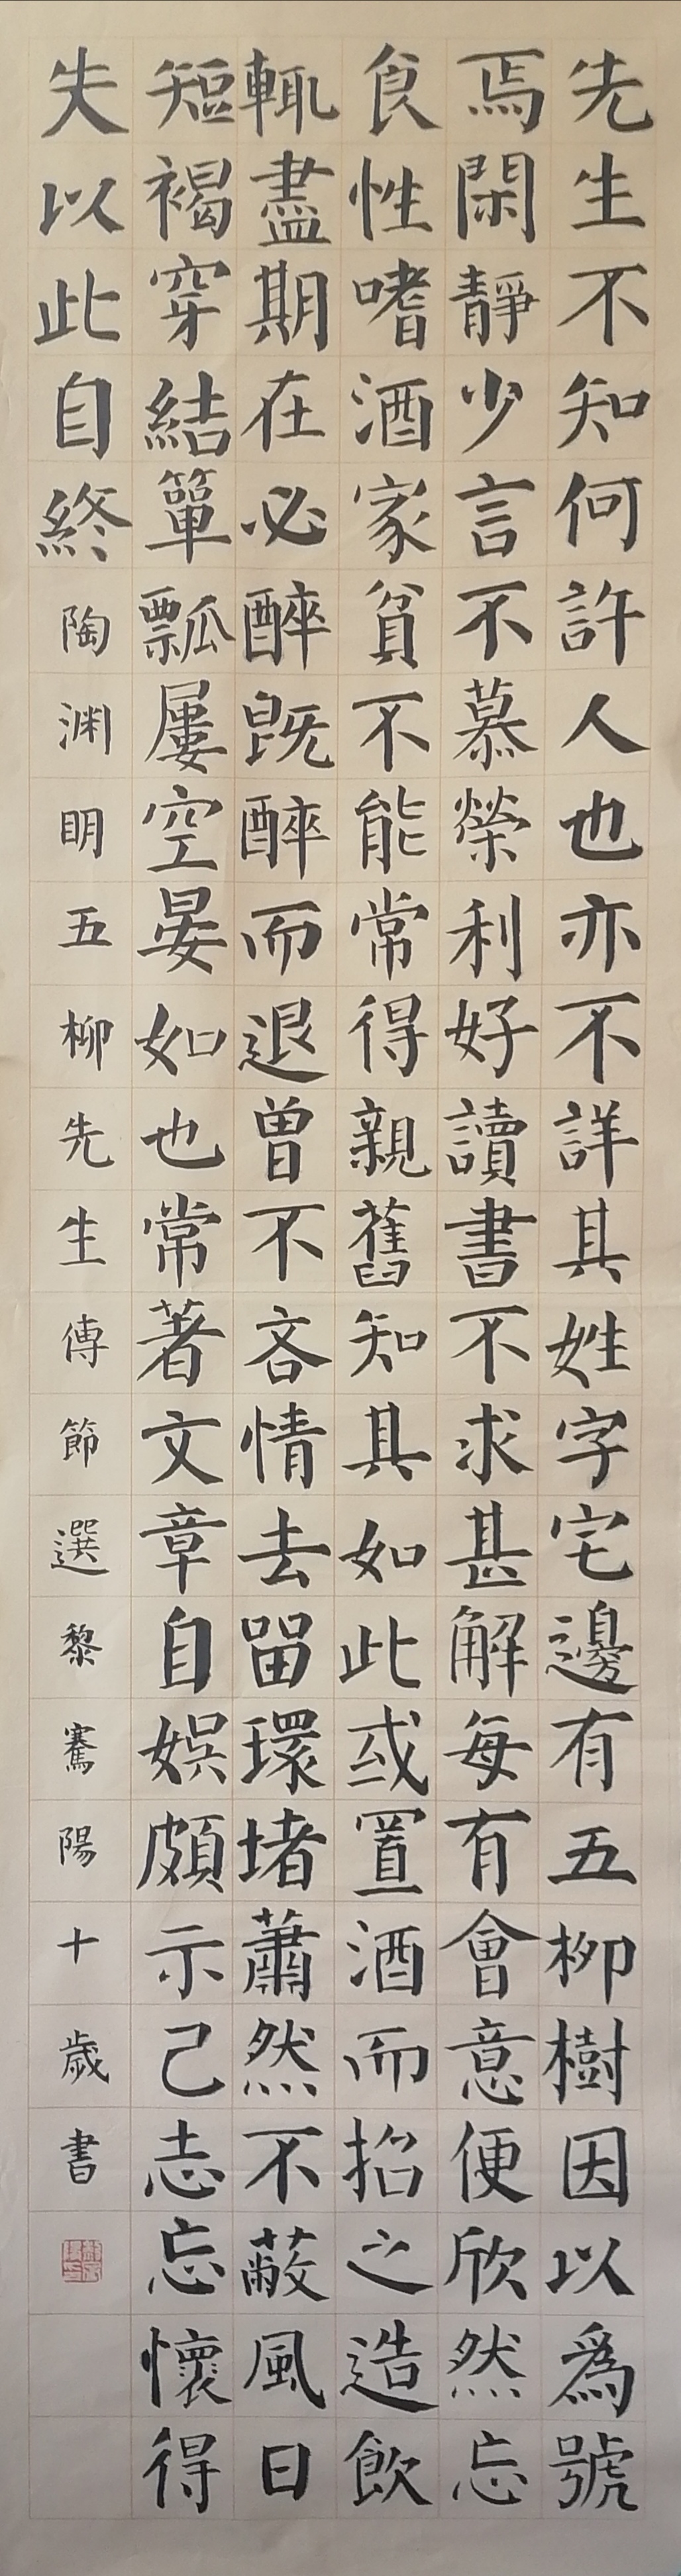 先生不知何許人也亦不詳其姓字宅邊有五柳樹因以爲號
焉閑靜少言不慕榮利好讀書不求甚解每有會意便欣然忘
食性嗜酒家貧不能常得親舊知其如此或置酒而招之造飲
輒盡期在必醉既醉而退曾不吝情去留環堵蕭然不蔽風日
短褐穿結簞瓢屢空晏如也常著文章自娛頗示己志忘懷得
失以此自終陶渊明五柳先生傳節選黎騫陽十歲書